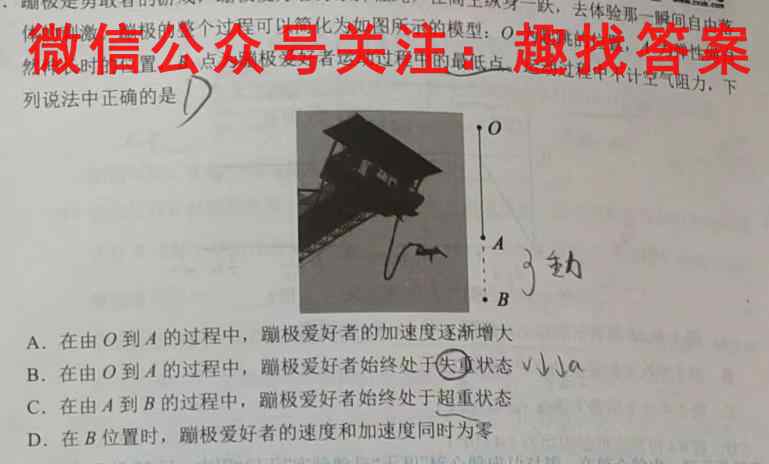 蹦极是勇敢者的游戏，蹦极爱好者
在高空纵身一跃，去体验那一瞬间自由落
体的刺激。蹦极的整个过程可以简化为如图所示的模型：O
微信公众号关注：趣找答案
点为蹦极爱好者运动过程中的最低点，运动过程中不计空气阻力，下
列说法中正确的是 D
O
A
B
A．在由 O 到 A 的过程中，蹦极爱好者的加速度逐渐增大
B．在由 O 到 A 的过程中，蹦极爱好者始终处于失重状态 v↓↓a
C．在由 A 到 B 的过程中，蹦极爱好者始终处于超重状态
D．在 B 位置时，蹦极爱好者的速度和加速度同时为零